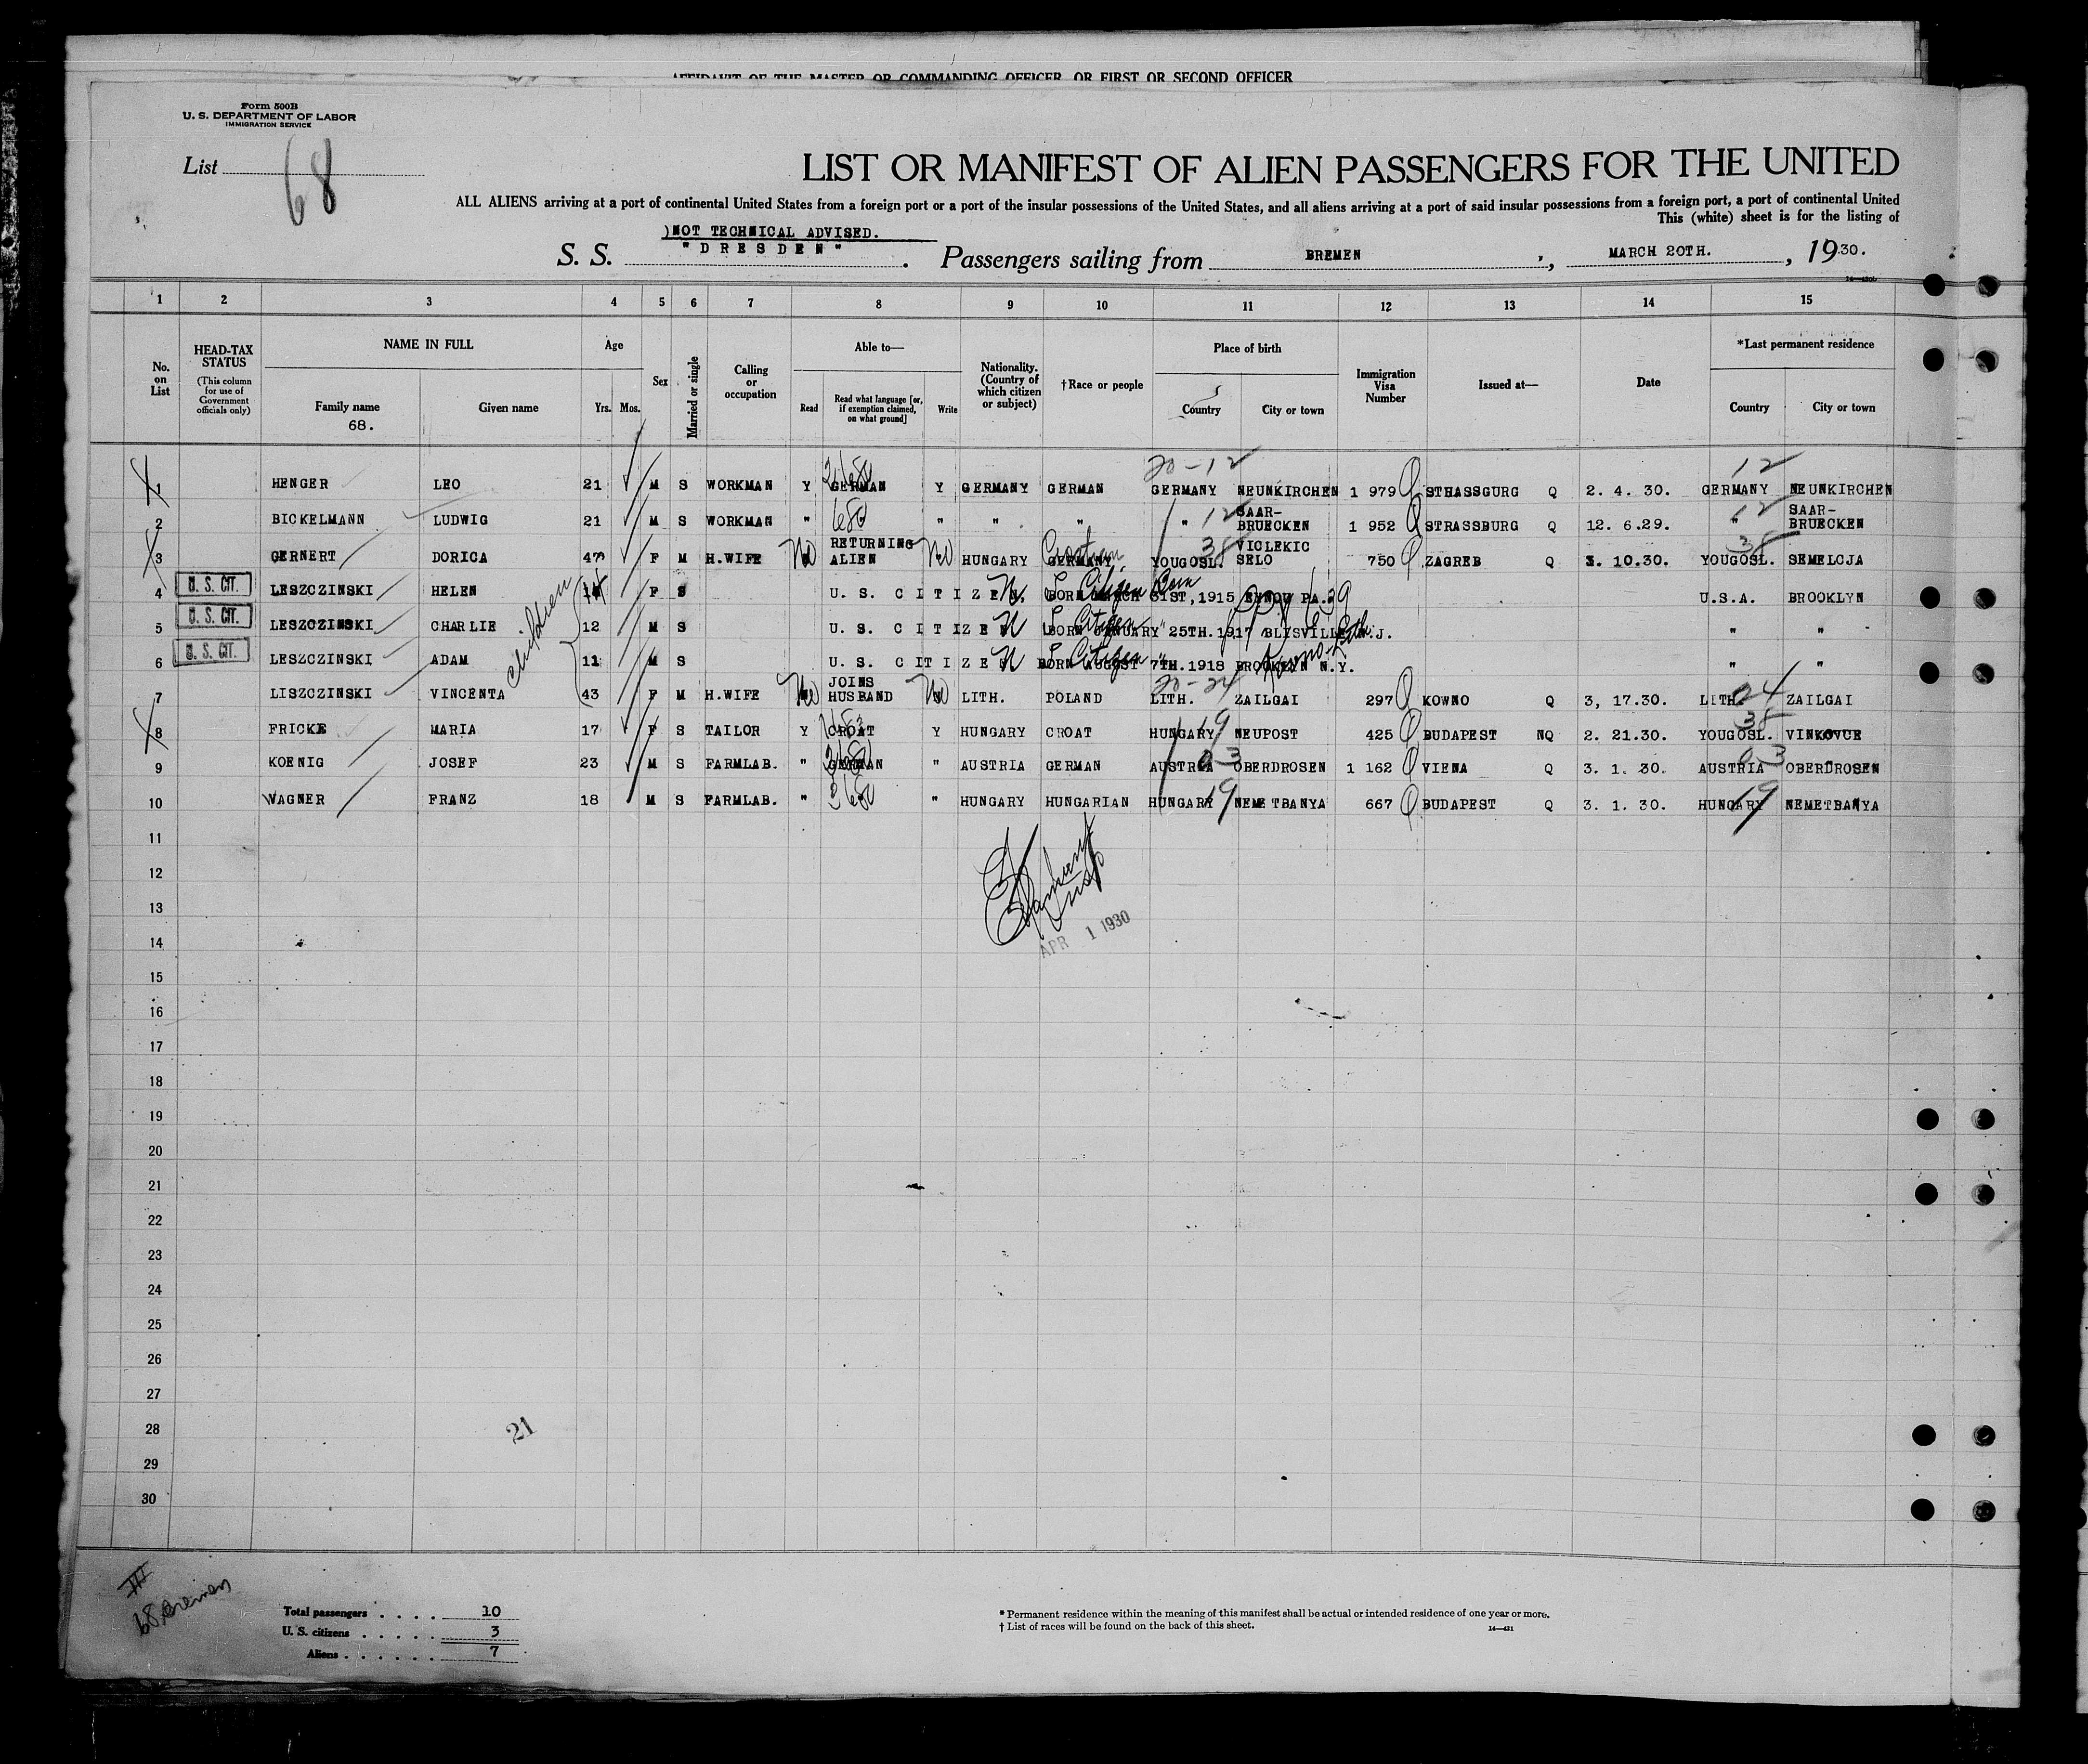 AFFIDAVIT OF THE MASTER OR COMMANDING OFFICER, OR FIRST OR SECOND OFFICER
Form 500B
U. S. DEPARTMENT OF LABOR
IMMIGRATION SERVICE
List 68
LIST OR MANIFEST OF ALIEN PASSENGERS FOR THE UNITED
ALL ALIENS arriving at a port of continental United States from a foreign port or a port of the insular possessions of the United States, and all aliens arriving at a port of said insular possessions from a foreign port, a port of continental United
This (white) sheet is for the listing of
)NOT TECHNICAL ADVISED.
S. S. "DRESDEN". Passengers sailing from BREMEN, MARCH 20TH., 1930.
1 2 3 4 5 6 7 8 9 10 11 12 13 14 15
No. on List HEAD-TAX STATUS (This column for use of Government officials only) NAME IN FULL Family name Given name Age Yrs. Mos. Sex Married or single Calling or occupation Able to— Read Read what language [or, if exemption claimed, on what ground] Write Nationality. (Country of which citizen or subject) †Race or people Place of birth Country City or town Immigration Visa Number Issued at— Date *Last permanent residence Country City or town
68.
20-12 12
1 HENGER LEO 21 M S WORKMAN Y GERMAN Y GERMANY GERMAN GERMANY NEUNKIRCHEN 1 979 STHASSGURG Q 2. 4. 30. GERMANY NEUNKIRCHEN
2 BICKELMANN LUDWIG 21 M S WORKMAN " " " " " 12 SAAR-BRUECKEN 1 952 STRASSBURG Q 12. 6.29. " 12 SAAR-BRUECKEN
3 GERNERT DORICA 47 F M H.WIFE No RETURNING ALIEN No HUNGARY GERMANY Croatian YOUGOSL. 38 VICLEKIC SELO 750 ZAGREB Q 3. 10.30. YOUGOSL. 38 SEMELCJA
4 U. S. CIT. LESZCZINSKI HELEN 14 F S U. S. CITIZEN. BORN MARCH 31ST,1915 PA. U.S.A. BROOKLYN
5 U. S. CIT. LESZCZINSKI CHARLIE 12 M S U. S. CITIZEN BORN JANUARY 25TH.1917 BLYSVILLE N.J. " "
6 U. S. CIT. LESZCZINSKI ADAM 11 M S U. S. CITIZEN BORN AUGUST 7TH.1918 BROOKLYN N.Y. " "
children
20-24
7 LISZCZINSKI VINCENTA 43 F M H.WIFE No JOINS HUSBAND No LITH. POLAND LITH. ZAILGAI 297 KOWNO Q 3, 17.30. LITH. 24 ZAILGAI
8 FRICKE MARIA 17 F S TAILOR Y CROAT Y HUNGARY CROAT HUNGARY 19 NEUPOST 425 BUDAPEST NQ 2. 21.30. YOUGOSL. 38 VINKOVCE
9 KOENIG JOSEF 23 M S FARMLAB. " GERMAN " AUSTRIA GERMAN AUSTRIA 03 OBERDROSEN 1 162 VIENA Q 3. 1. 30. AUSTRIA 03 OBERDROSEN
10 WAGNER FRANZ 18 M S FARMLAB. " " HUNGARY HUNGARIAN HUNGARY 19 NEMETBANYA 667 BUDAPEST Q 3. 1. 30. HUNGARY 19 NEMETBANYA
11
12
13
APR 1 1930
14
15
16
17
18
19
20
21
22
23
24
25
26
27
28
21
29
30
III
68 Bremen
Total passengers . . . . 10
U. S. citizens . . . . . 3
Aliens . . . . . . 7
* Permanent residence within the meaning of this manifest shall be actual or intended residence of one year or more.
† List of races will be found on the back of this sheet.
14—431